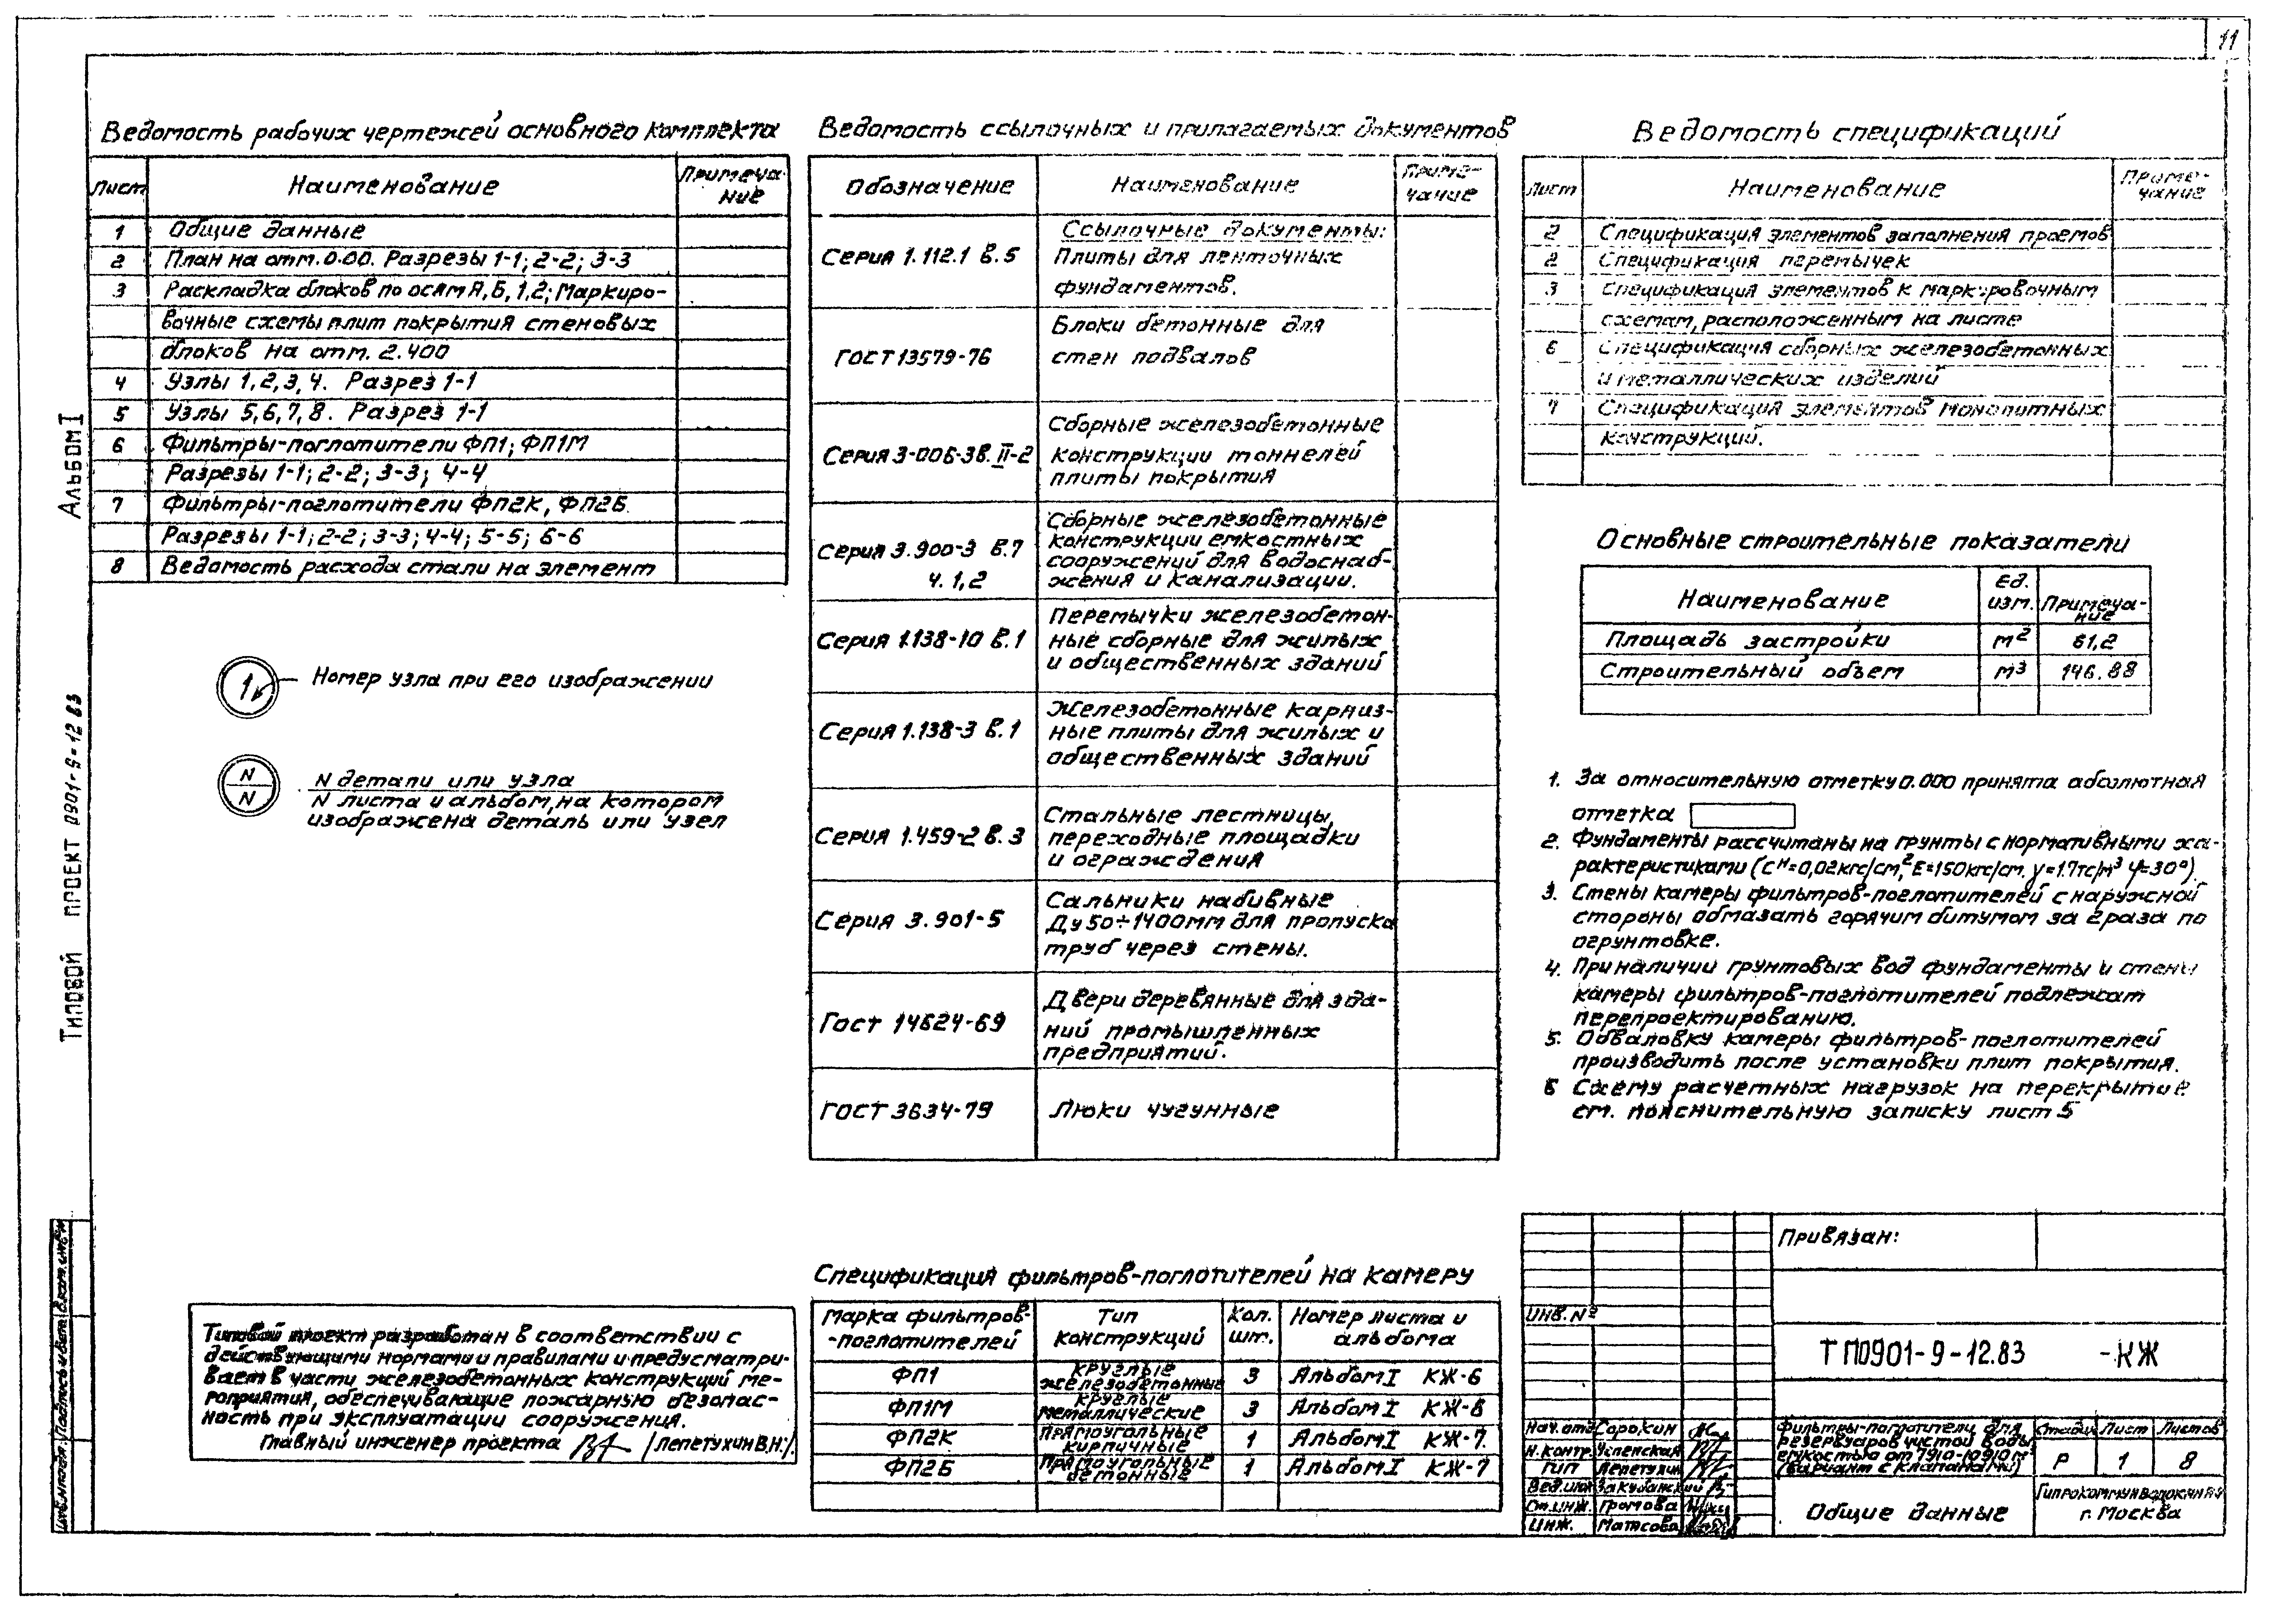 11
Ведомость рабочих чертежей основного комплекта
Лист
Наименование
Примеча-
ние
1 Общие данные
2 План на отм. 0.00. Разрезы 1-1; 2-2; 3-3
3 Раскладка блоков по осям А, Б, 1, 2; Маркиро-
вочные схемы плит покрытия стеновых
блоков на отм. 2.400
4 Узлы 1, 2, 3, 4. Разрез 1-1
5 Узлы 5, 6, 7, 8. Разрез 1-1
6 Фильтры-поглотители ФП1; ФП1М
Разрезы 1-1; 2-2; 3-3; 4-4
7 Фильтры-поглотители ФП2К, ФП2Б.
Разрезы 1-1; 2-2; 3-3; 4-4; 5-5; 6-6
8 Ведомость расхода стали на элемент
1
Номер узла при его изображении
N
N
N детали или узла
N листа и альбом, на котором
изображена деталь или узел
Ведомость ссылочных и прилагаемых документов
Обозначение
Наименование
Приме-
чание
Ссылочные документы:
Серия 1.112.1 в.5
Плиты для ленточных
фундаментов.
ГОСТ 13579-76
Блоки бетонные для
стен подвалов
Серия 3-006-3в. II-2
Сборные железобетонные
конструкции тоннелей
плиты покрытия
Серия 3.900-3 в.7
ч. 1, 2
Сборные железобетонные
конструкции емкостных
сооружений для водоснаб-
жения и канализации.
Серия 1.138-10 в.1
Перемычки железобетон-
ные сборные для жилых
и общественных зданий
Серия 1.138-3 в.1
Железобетонные карниз-
ные плиты для жилых и
общественных зданий
Серия 1.459-2 в.3
Стальные лестницы,
переходные площадки
и ограждения
Серия 3.901-5
Сальники набивные
Ду 50÷1400мм для пропуска
труб через стены.
Гост 14624-69
Двери деревянные для зда-
ний промышленных
предприятий.
ГОСТ 3634-79
Люки чугунные
Ведомость спецификаций
Лист
Наименование
Приме-
чание
2 Спецификация элементов заполнения проемов
2 Спецификация перемычек
3 Спецификация элементов к маркировочным
схемам, расположенным на листе
6 Спецификация сборных железобетонных
и металлических изделий
7 Спецификация элементов монолитных
конструкций.
Основные строительные показатели
Наименование
Ед.
изм.
Примеча-
ние
Площадь застройки м² 61,2
Строительный объем м³ 146.88
1. За относительную отметку 0.000 принята абсолютная
отметка
2. Фундаменты рассчитаны на грунты с нормативными ха-
рактеристиками (Сᴴ=0,02кгс/см², Е=150кгс/см. γ=1.7тс/м³ φ=30°)
3. Стены камеры фильтров-поглотителей с наружной
стороны обмазать горячим битумом за 2 раза по
огрунтовке.
4. При наличии грунтовых вод фундаменты и стены
камеры фильтров-поглотителей подлежат
перепроектированию.
5. Обваловку камеры фильтров-поглотителей
производить после установки плит покрытия.
6 Схему расчетных нагрузок на перекрытие
см. пояснительную записку лист 5
Альбом I
Типовой проект 0901-9-12 83
Инв.№подл. Подпись и дата Взам.инв.№
Типовой проект разработан в соответствии с
действующими нормами и правилами и предусматри-
вает в части железобетонных конструкций ме-
роприятия, обеспечивающие пожарную безопас-
ность при эксплуатации сооружения.
Главный инженер проекта /Лепетухин В.Н./
Спецификация фильтров-поглотителей на камеру
Марка фильтров-
-поглотителей
Тип
конструкций
Кол.
шт.
Номер листа и
альбома
ФП1 круглые железобетонные 3 Альбом I КЖ-6
ФП1М круглые металлические 3 Альбом I КЖ-6
ФП2К прямоугольные кирпичные 1 Альбом I КЖ-7.
ФП2Б прямоугольные бетонные 1 Альбом I КЖ-7
Привязан:
инв. №
ТП0901-9-12.83 -КЖ
Нач. отд Сорокин
Н.контр. Успенская
ГИП Лепетухин
Вед.инж Закубанский
Ст.инж. Громова
Инж. Матасова
Фильтры-поглотители для
резервуаров чистой воды
емкостью от 7910-10910 м³
(вариант с клапанами)
Стадия Лист Листов
Р 1 8
Общие данные
Гипрокоммунводоканал
г. Москва